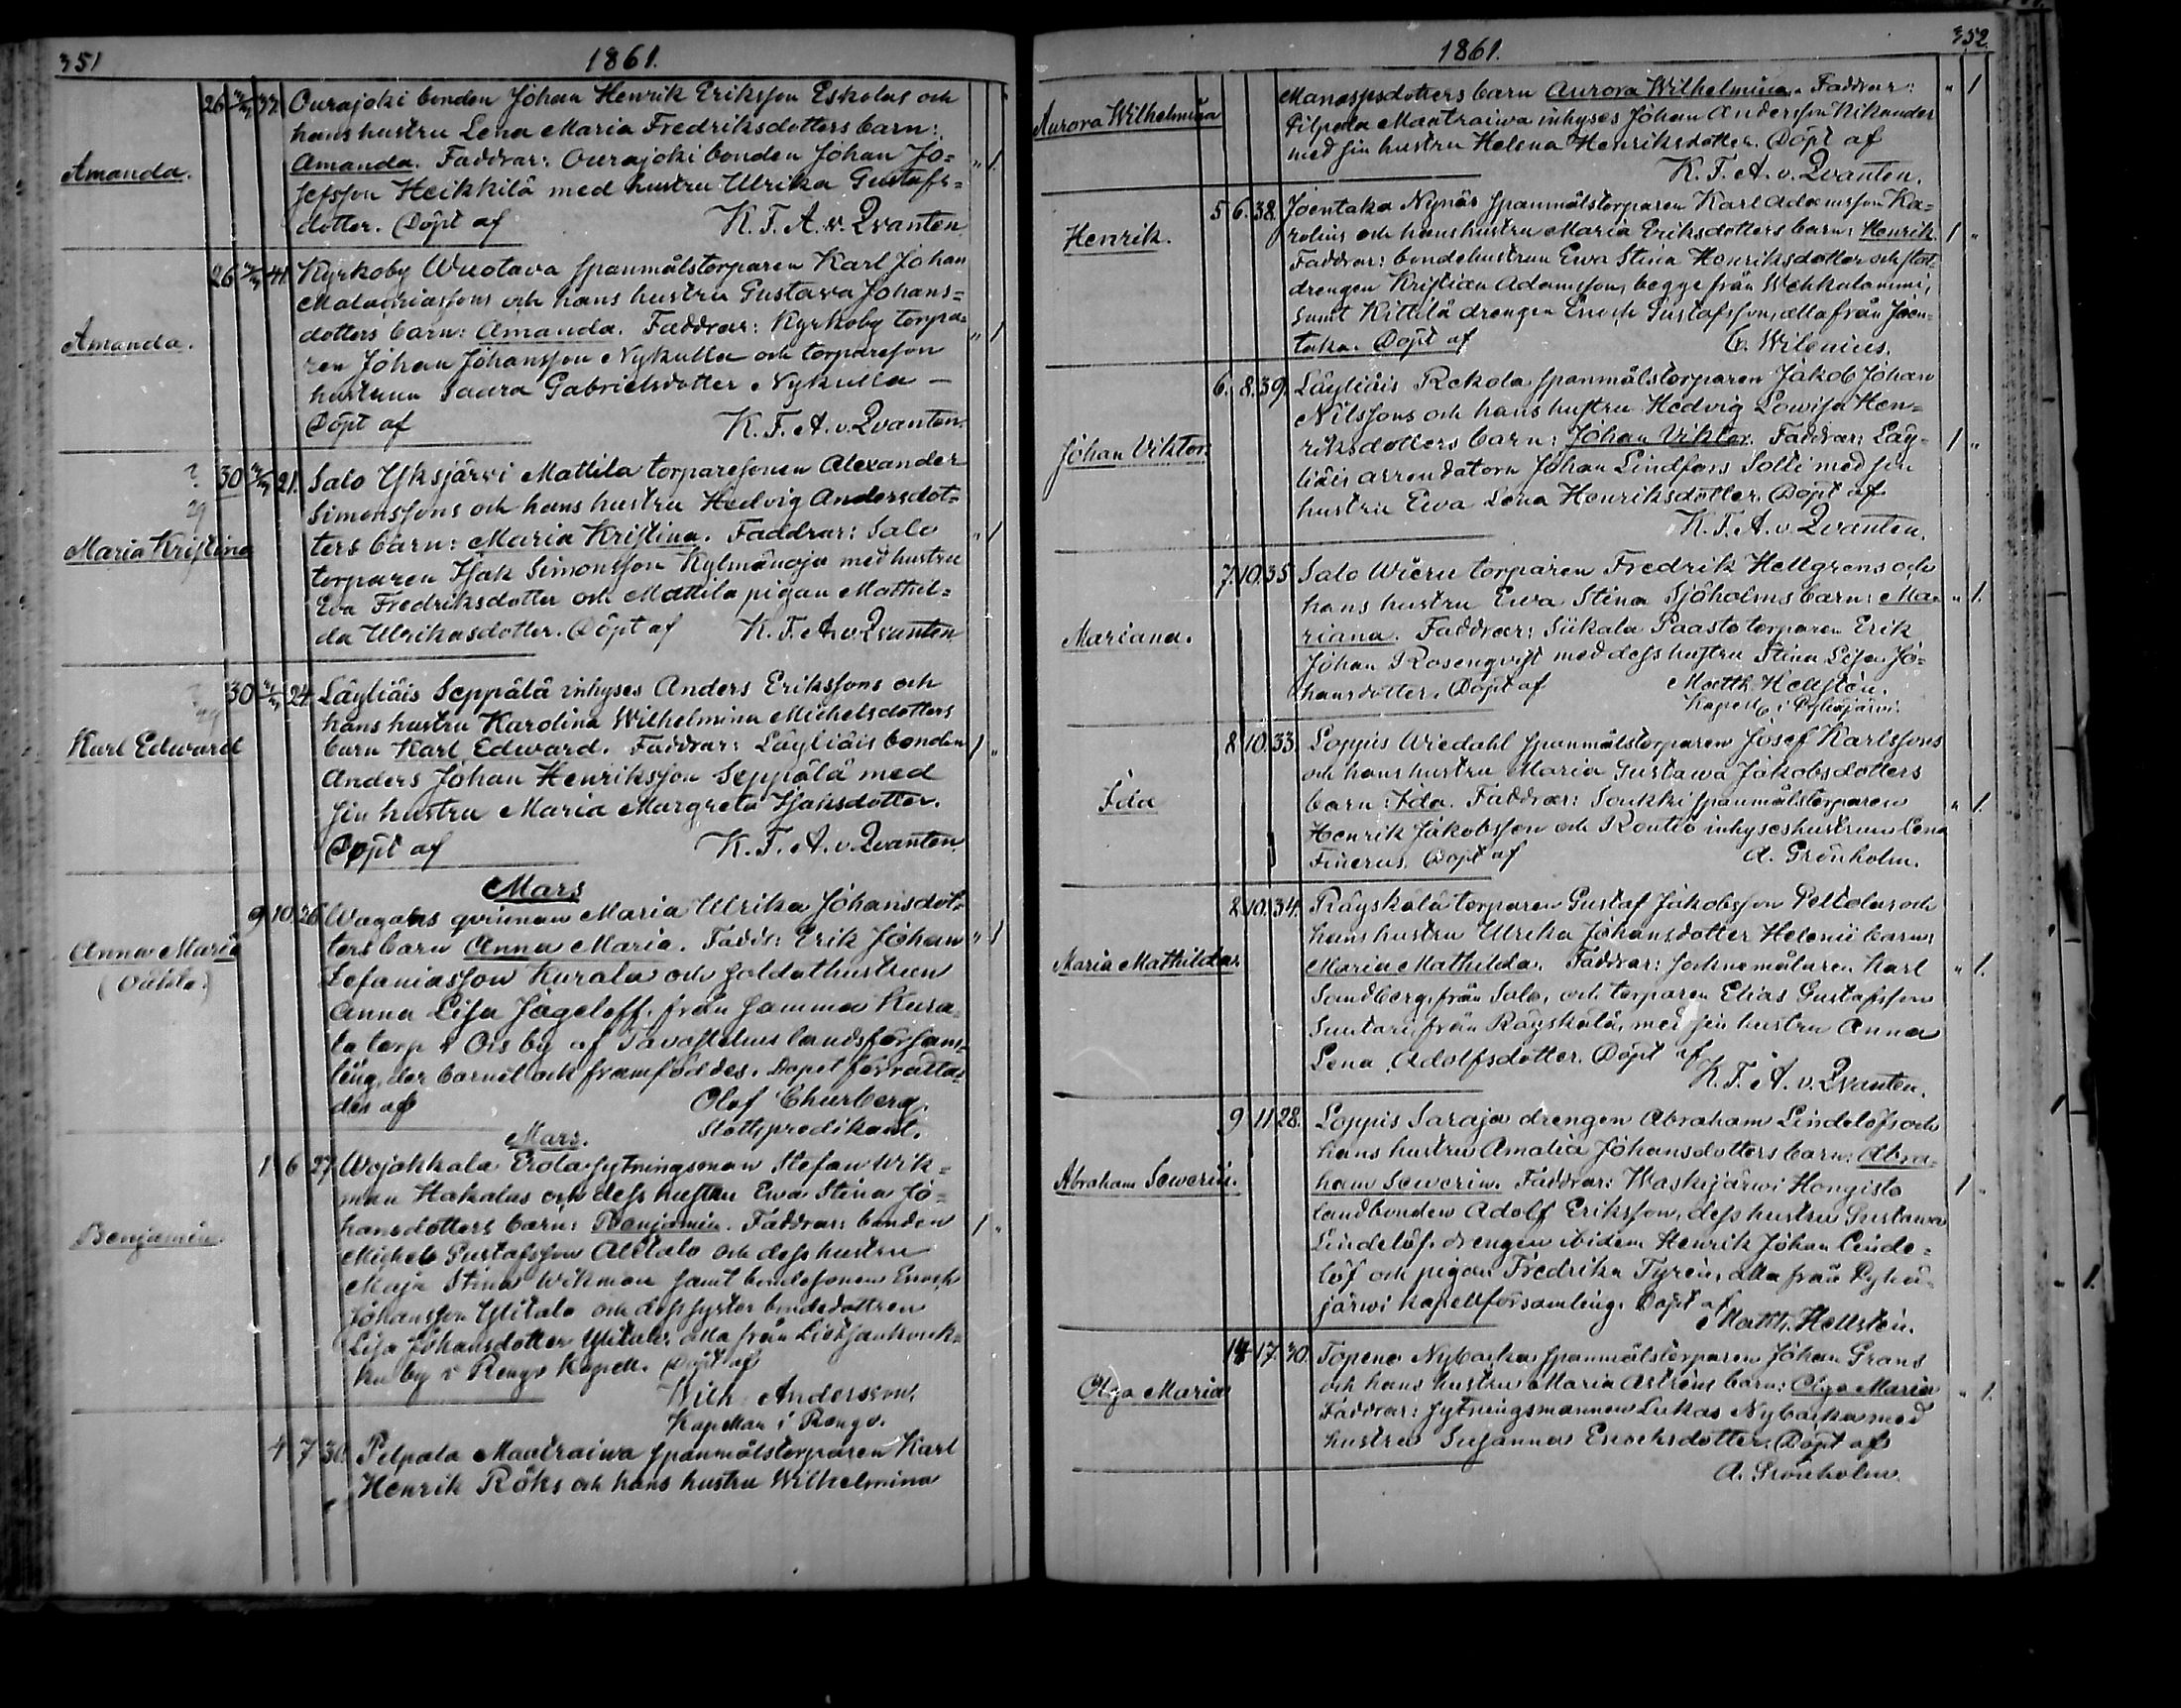 351
1861.
Amanda.
26 37. Ourajoki bonden Johan Henrik Eriksson Eskolas och
hans hustru Lena Maria Fredriksdotters barn:
Amanda. Faddrar: Ourajoki bonden Johan Jo=
sefsson Heikkilä med hustru Ulrika Gustafs=
dotter. Döpt af K. F. A. v. Qvanten.
" 1.
Amanda.
26 41. Kyrkoby Wuotava spanmålstorparen Karl Johan
Malachiassons och hans hustru Gustava Johans=
dotters barn: Amanda. Faddrar: Kyrkoby torpa=
ren Johan Johansson Nykulla och torpareson
hustrun Laura Gabrielsdotter Nykulla —
Döpt af K. F. A. v. Qvanten.
" 1
Maria Kristina
? 30 21. Salo Yksjärvi Mattila torparesonen Alexander
29
Simonssons och hans hustru Hedvig Andersdot=
ters barn: Maria Kristina. Faddrar: Salo
torparen Isak Simonsson Kylmänoja med hustru
Eva Fredriksdotter och Mattila pigan Mathil=
da Ulrikasdotter. Döpt af K. F. A. v. Qvanten
" 1
Karl Edward
? 30 24. Läyliäis Seppälä inhyses Anders Erikssons och
hans hustru Karolina Wilhelmina Michelsdotters
barn Karl Edward. Faddrar: Läyliäis bonden
Anders Johan Henriksson Seppälä med
sin hustru Maria Margreta Isaksdotter.
Döpt af K. F. A. v. Qvanten.
1 "
Mars
Anna Maria
(Oäkta.)
9 10. 26 qvinnan Maria Ulrika Johansdot=
ters barn Anna Maria. Faddr: Erik Johan
Zefaniasson Kurala och soldathustrun
Anna Lisa Jägeloff, från samma Kura=
la torp i Ois by af Tavastehus landsförsam=
ling, der barnet och framföddes. Dopet förrätta=
des af Olof Churberg.
Slottspredikant.
" 1
Mars.
Benjamin
1 6 27 Wojakkala Erola sytningsman Stefan Wik=
man Hakalas och dess hustru Ewa Stina Jo=
hansdotters barn: Benjamin. Faddrar: bonden
Michel Gustafsson Alitalo och dess hustru
Maja Stina Wikman samt bondesonen Enoch
Johansson Ylitalo och dess syster bondedottren
Lisa Johansdotter Ylitalo, alla från
by i Rengo Kapell. Döpt af
Wilh. Anderson,
Kapellan i Rengo.
1 "
4 7 30. Pilpala Maatraiwa spanmålstorparen Karl
Henrik Röks och hans hustru Wilhelmina
352.
1861.
Aurora Wilhelmina
Manassesdotters barn Aurora Wilhelmina. Faddrar:
Pilpala Maatraiwa inhyses Johan Andersson Nikander
med sin hustru Helena Henriksdotter. Döpt af
K. F. A. v. Qvanten.
" 1
Henrik.
5 6. 38. Joentaka Nynäs spanmålstorparen Karl Adamsson Ka=
rolius och hans hustru Maria Eriksdotters barn: Henrik.
Faddrar: bondehustrun Ewa Stina Henriksdotter och stat=
drengen Kristian Adamsson, begge från Wehkalammi,
samt Kittilä drengen Enoch Gustafsson, alla från Joen=
taka. Döpt af G. Wilenius.
1 "
Johan Viktor.
6. 8. 39. Läyliäis Rekola spanmålstorparen Jakob Johan
Nilssons och hans hustru Hedvig Lowisa Hen=
riksdotters barn: Johan Viktor. Faddrar: Läy=
liäis arrendatorn Johan Lindfors Solti med sin
hustru Ewa Lena Henriksdotter. Döpt af
K. F. A. v. Qvanten.
1 "
Mariana.
7. 10. 35. Salo Wieru torparen Fredrik Hellgrens och
hans hustru Ewa Stina Sjöholms barn: Ma=
riana. Faddrar: Siikala Paasto torparen Erik
Johan Rosenqvist med dess hustru Stina Lisa Jo=
hansdotter. Döpt af Matth. Hellstén.
Kapell. i Pyhäjärvi.
" 1.
Ida
8 10. 33. Loppis Wiedahl spanmålstorparen Josef Karlssons
och hans hustru Maria Gustawa Jakobsdotters
barn: Ida. Faddrar: Soukki spanmålstorparen
Henrik Jakobsson och Rontio inhyseshustrun Lena
Finerus. Döpt af A. Grönholm.
" 1.
Maria Mathilda.
8. 10. 34. Räyskälä torparen Gustaf Jakobsson Peltolas och
hans hustru Ulrika Johansdotter Helenii barn:
Maria Mathilda. Faddrar: socknemålaren Karl
Sandberg, från Salo, och torparen Elias Gustafsson
Suutari, från Räyskälä, med sin hustru Anna
Lena Adolfsdotter. Döpt af
K. F. A. v. Qvanten.
" 1.
Abraham Sewerin.
9 11 28. Loppis Saraja drengen Abraham Lindelöfs och
hans hustru Amalia Johansdotters barn: Abra=
ham Sewerin. Faddrar: Waskijärwi Hongisto
landbonden Adolf Eriksson, dess hustru Gustawa
Lindelöf, drengen ibidem Henrik Johan Linde=
löf och pigan Fredrika Tyrén, alla från Pyhä=
järwi kapellförsamling. Döpt af
Matth. Hellstén.
1 "
Olga Maria
14 17. 30. Topeno Nybacka spanmålstorparen Johan Grans
och hans hustru Maria Astréns barn: Olga Maria
Faddrar: sytningsmannen Lukas Nybacka med
hustru Susanna Enochsdotter. Döpt af
A. Grönholm.
" 1.